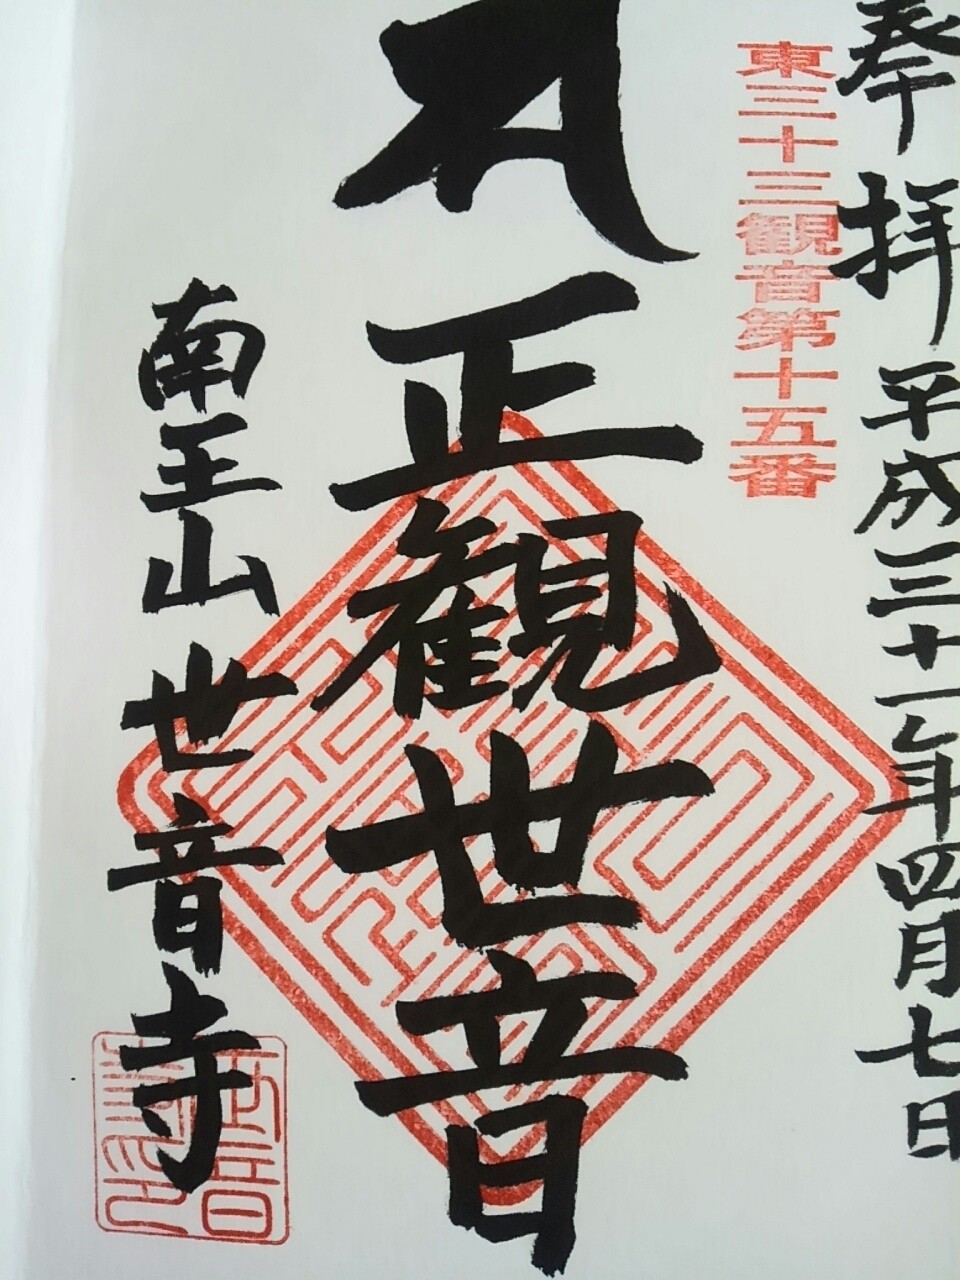 奉拝 平成三十一年四月七日
東三十三観音第十五番
正観世音
南王山 世音寺